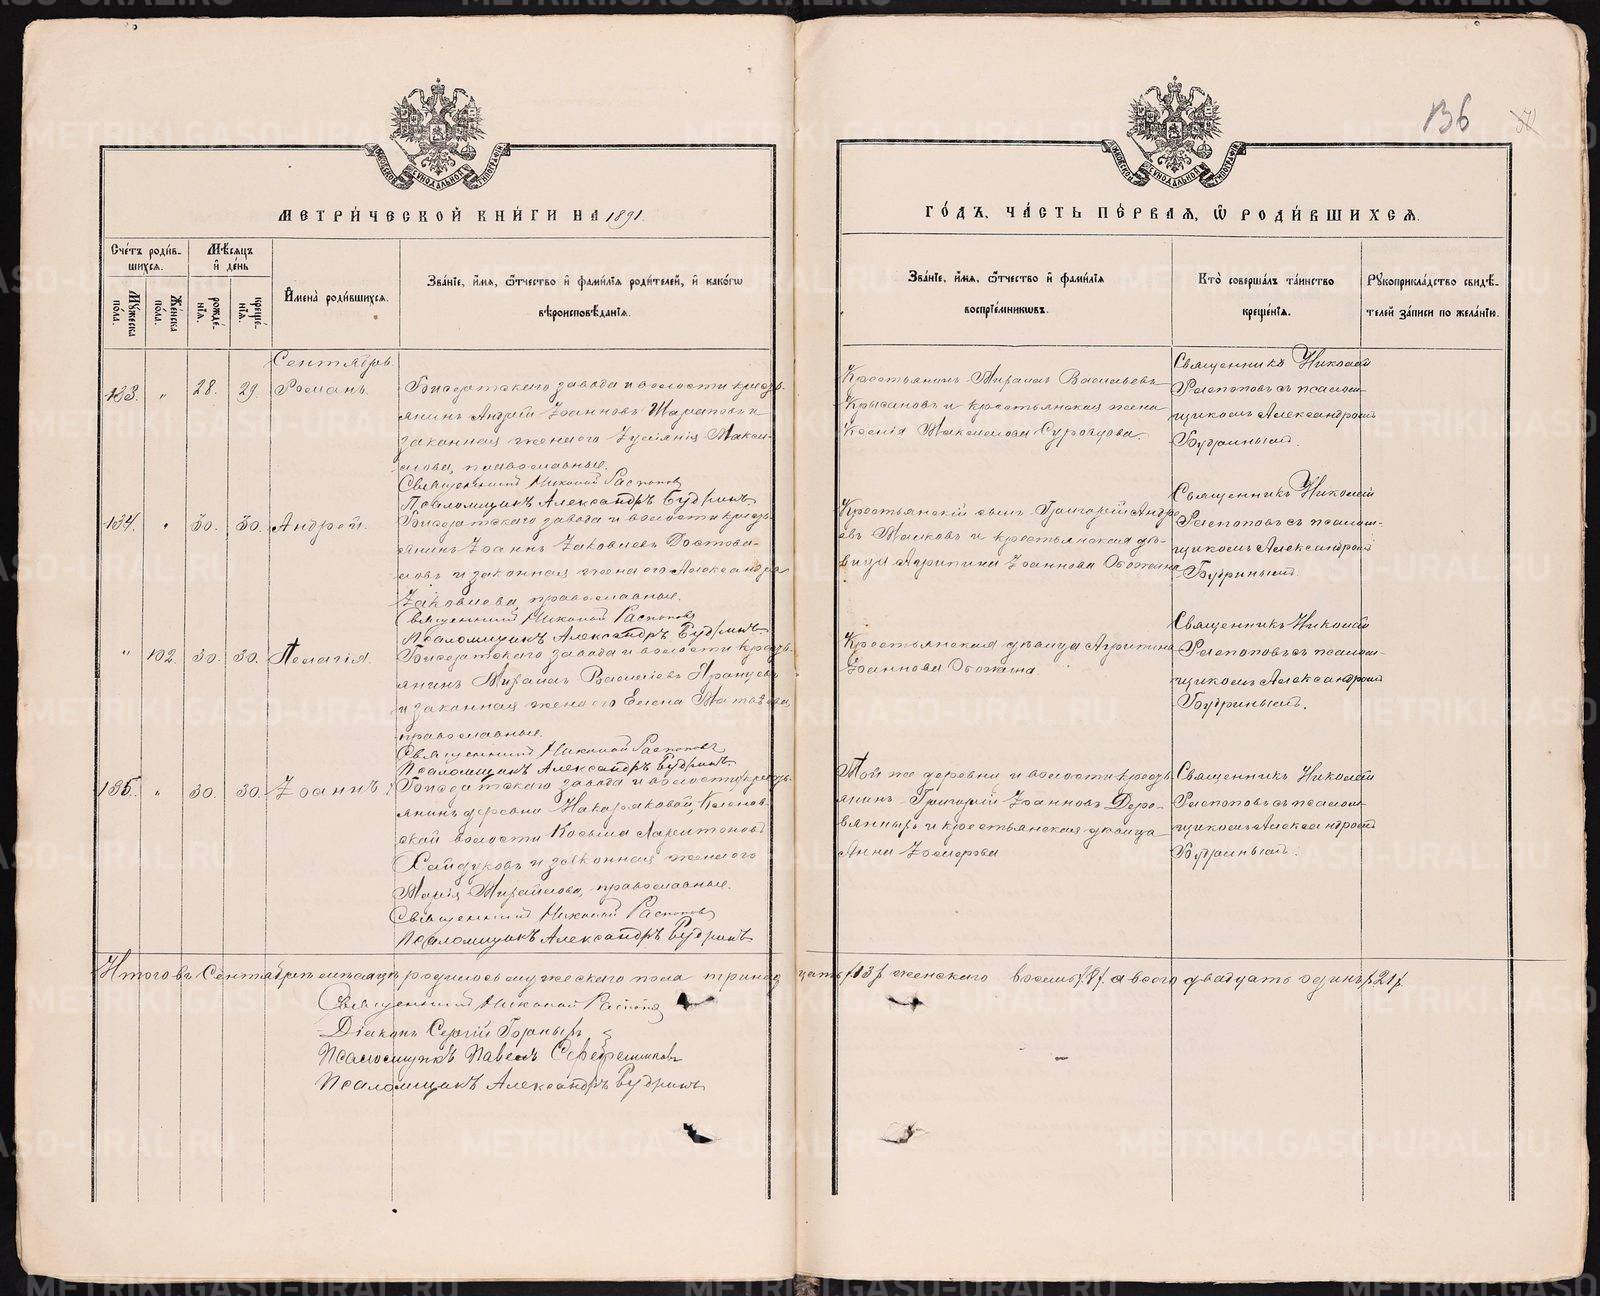 136
МЕТРИ́ЧЕСКОЙ КНИ́ГИ НА 1891.
ГО́ДЪ, ЧА́СТЬ ПЕ́РВАЯ, Ѡ РОДИ́ВШИХСЯ.
Сче́тъ роди́в-
шихся.
Мѣ́сяцъ
и҆ де́нь
Му́жеска
по́ла.
Же́нска
по́ла.
рожде́-
нїя.
креще́-
нїя.
И҆мена̀ роди́вшихся.
Зва́нїе, и҆́мя, ѻ҆́тчество и҆ фами́лїя роди́телей, и҆ како́гѡ
вѣроисповѣ́данїя.
Зва́нїе, и҆́мя, ѻ҆́тчество и҆ фами́лїя
воспрїе́мниковъ.
Кто̀ соверша́лъ та́инство
креще́нїя.
Рукоприкла́дство свидѣ́-
телей за́писи по жела́нїю.
Сентябрь
133. " 28. 29. Романъ.
Бисертскаго завода и волости кресть-
янинъ Андрей Іоанновъ
законная жена его Максим-
мова, православные.
Священникъ Николай Распоповъ
Псаломщикъ Александръ Будринъ
Крестьянинъ Михаилъ Васильевъ
Крысановъ и крестьянская жена
Ксенія Максимова Суровцова.
Священникъ Николай
Распоповъ съ псалом-
щикомъ Александромъ
Будринымъ.
134. " 30. 30. Андрей.
Бисертскаго завода и волости кресть-
янинъ Іоаннъ Іаковлевъ
и законная жена его Александра
Іаковлева, православные.
Священникъ Николай Распоповъ
Псаломщикъ Александръ Будринъ
Крестьянскій сынъ Григорій Андре-
евъ и крестьянская дѣ-
вица Агрипина Іоаннова
Священникъ Николай
Распоповъ съ псалом-
щикомъ Александромъ
Будринымъ.
" 102 30. 30. Пелагія.
Бисертскаго завода и волости кресть-
янинъ Михаилъ Василіевъ
и законная жена его Елена Матвѣева,
православные.
Священникъ Николай Распоповъ
Псаломщикъ Александръ Будринъ
Крестьянская дѣвица Агрипина
Іоаннова
Священникъ Николай
Распоповъ съ псалом-
щикомъ Александромъ
Будринымъ.
135. " 30. 30. Іоаннъ.
Бисертскаго завода и волости кресть-
янинъ деревни Накоряковой, Кленов-
ской волости Косьма Харитоновъ
Хайдуковъ и законная жена его
Марія Михайлова, православные.
Священникъ Николай Распоповъ
Псаломщикъ Александръ Будринъ
Той же деревни и волости кресть-
янинъ Григорій Іоанновъ Дере-
вянныхъ и крестьянская дѣвица
Анна
Священникъ Николай
Распоповъ съ псалом-
щикомъ Александромъ
Будринымъ.
Итого въ Сентябрѣ мѣсяцѣ родилось мужескаго пола тринад цать /13/ женскаго восемь /8/ а всего двадцать одинъ /21/.
Священникъ Николай Распоповъ
Діаконъ Сергій Горныхъ
Псаломщикъ Павелъ Серебренниковъ
Псаломщикъ Александръ Будринъ